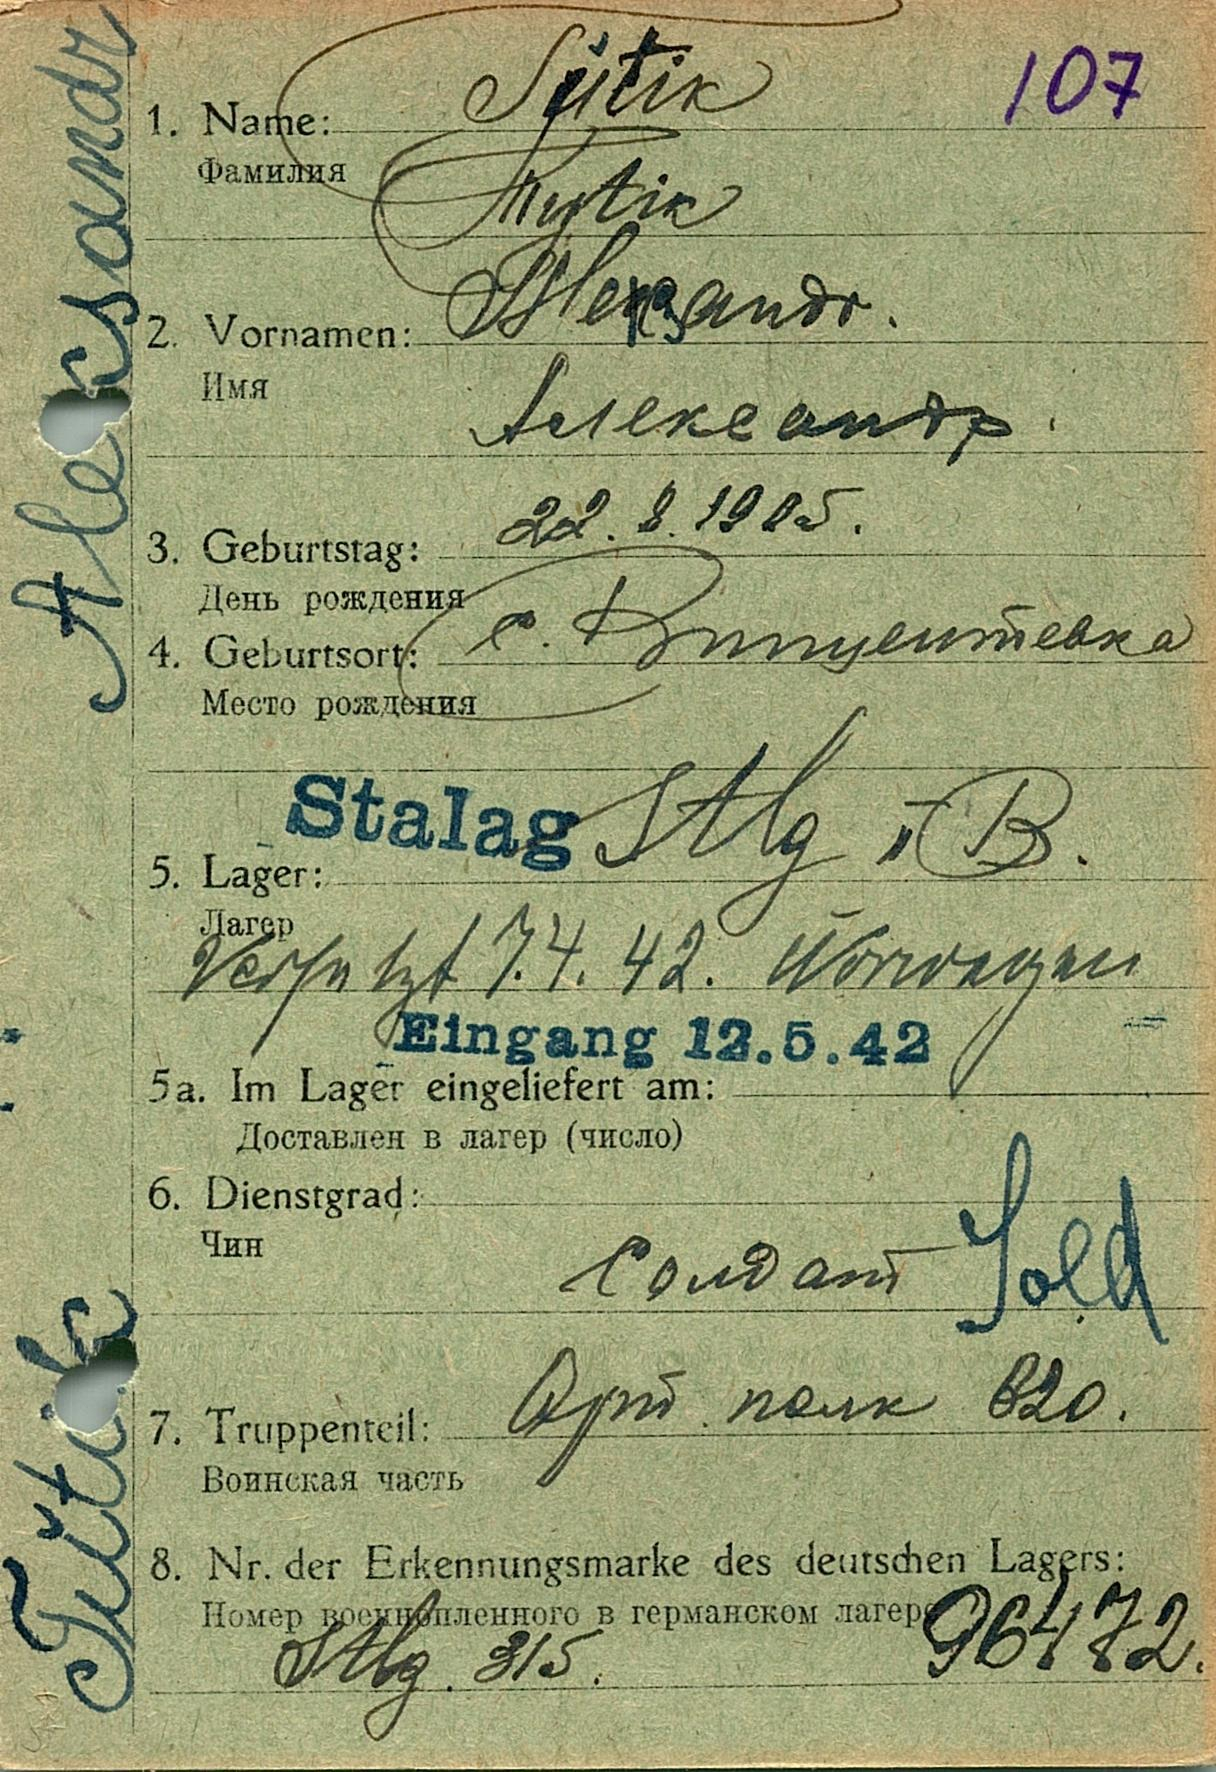 107
Tütik
1. Name:
Фамилия
Тутік
Aleksandr.
2. Vornamen:
Имя
Александр.
22.8.1905.
3. Geburtstag:
День рождения
4. Geburtsort: с. Винцентевка
Место рождения
Stalag Stlg II B.
5. Lager:
Лагер
Versetzt 7.4.42. Norwegen
Eingang 12.5.42
5a. Im Lager eingeliefert am:
Доставлен в лагер (число)
6. Dienstgrad:
Чин
Солдат Sold
7. Truppenteil: Арт. полк 820.
Воинская часть
8. Nr. der Erkennungsmarke des deutschen Lagers:
Номер военнопленного в германском лагере
Stlg. 315. 96472.
Tütik Aleksandr